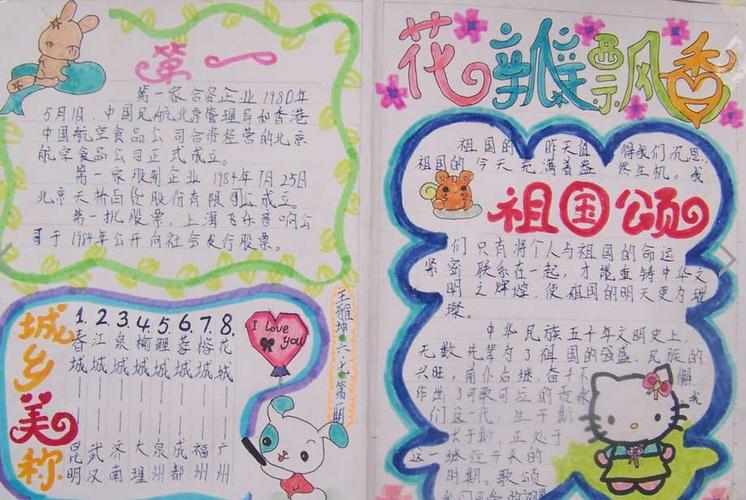 第一
第一家合资企业 1980年
5月1日,中国民航北京管理局和香港
中国航空食品公司合资经营的北京
航空食品公司正式成立。
第一家股制企业 1984年7月25日
北京天桥百货股份有限公司成立。
第一批股票,上海飞乐音响公
司于1984年公开向社会发行股票。
城乡美称
1. 2. 3. 4. 5. 6. 7. 8.
春城——昆明
江城——武汉
泉城——济南
榆城——大理
鲤城——泉州
蓉城——成都
榕城——福州
花城——广州
I love you
花瓣飘香
祖国的 昨天值 得我们沉思,
祖国的今天充满着 生机。我
祖国颂
们只有将个人与祖国的命运
紧密联系在一起,才能重铸中华文
明之辉煌,使祖国的明天更为璀
璨。
中华民族五千年文明史上,
无数先辈为了祖国的强盛、民族的
兴旺,前仆后继、奋斗不懈
作出了可歌可泣的 我
们这一代,生于
长于 正处于
这一
时期。歌颂